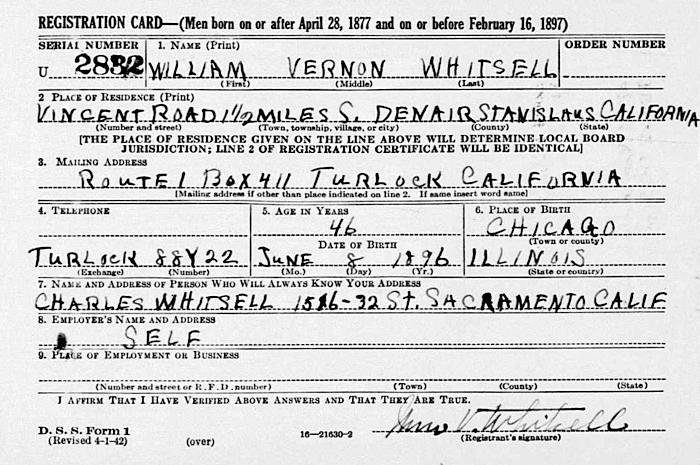 REGISTRATION CARD—(Men born on or after April 28, 1877 and on or before February 16, 1897)
SERIAL NUMBER 1. NAME (Print) ORDER NUMBER
U 2832 WILLIAM VERNON WHITSELL
(First) (Middle) (Last)
2 PLACE OF RESIDENCE (Print)
VINCENT ROAD 1 1/2 MILES S. DENAIR STANISLAUS CALIFORNIA
(Number and street) (Town, township, village, or city) (County) (State)
[THE PLACE OF RESIDENCE GIVEN ON THE LINE ABOVE WILL DETERMINE LOCAL BOARD
JURISDICTION; LINE 2 OF REGISTRATION CERTIFICATE WILL BE IDENTICAL]
3. MAILING ADDRESS
ROUTE 1 BOX 411 TURLOCK CALIFORNIA
[Mailing address if other than place indicated on line 2. If same insert word same]
4. TELEPHONE 5. AGE IN YEARS 6. PLACE OF BIRTH
46 CHICAGO
DATE OF BIRTH (Town or county)
TURLOCK 88Y22 JUNE 8 1896 ILLINOIS
(Exchange) (Number) (Mo.) (Day) (Yr.) (State or country)
7. NAME AND ADDRESS OF PERSON WHO WILL ALWAYS KNOW YOUR ADDRESS
CHARLES WHITSELL 1516-32 ST. SACRAMENTO CALIF
8. EMPLOYER'S NAME AND ADDRESS
SELF
9. PLACE OF EMPLOYMENT OR BUSINESS
(Number and street or R. F. D. number) (Town) (County) (State)
I AFFIRM THAT I HAVE VERIFIED ABOVE ANSWERS AND THAT THEY ARE TRUE.
D. S. S. Form 1
(Revised 4-1-42) (over) 16—21630-2 V. Whitsell
(Registrant's signature)